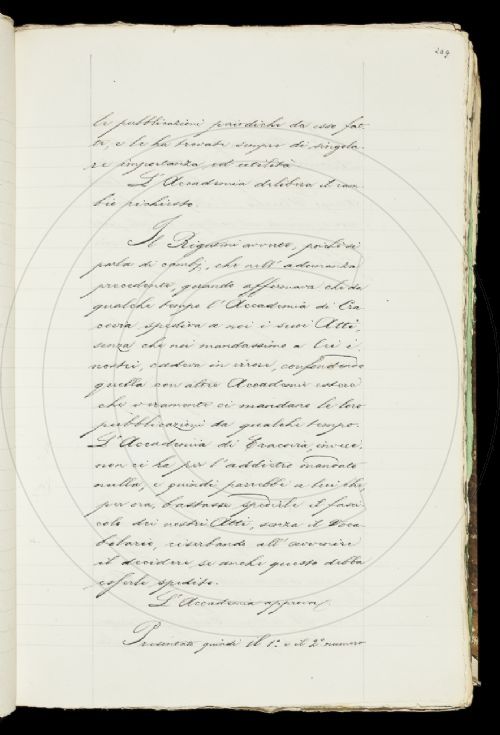 209
le pubblicazioni periodiche da esso fat-
te, e le ha trovate sempre di singola-
re importanza ed utilità.
L'Accademia delibera il cam-
bio richiesto.
Il Rigutini avverte, poichè si
parla di cambj, che nell'adunanza
precedente, quando affermava che da
qualche tempo l'Accademia di Cra-
covia spediva a noi i suoi Atti,
senza che noi mandassimo a lei i
nostri, cadeva in errore, confondendo
quella con altre Accademie estere
che veramente ci mandano le loro
pubblicazioni da qualche tempo.
L'Accademia di Cracovia, invece,
non ci ha per l'addietro mandato
nulla, e quindi parrebbe a lui che,
per ora, bastasse spedirle il fasci-
colo dei nostri Atti, senza il Voca-
bolario, riserbando all'avvenire
il decidere se anche questo debba
esserle spedito.
L'Accademia approva.
Presenta quindi il 1.º e il 2.º numero